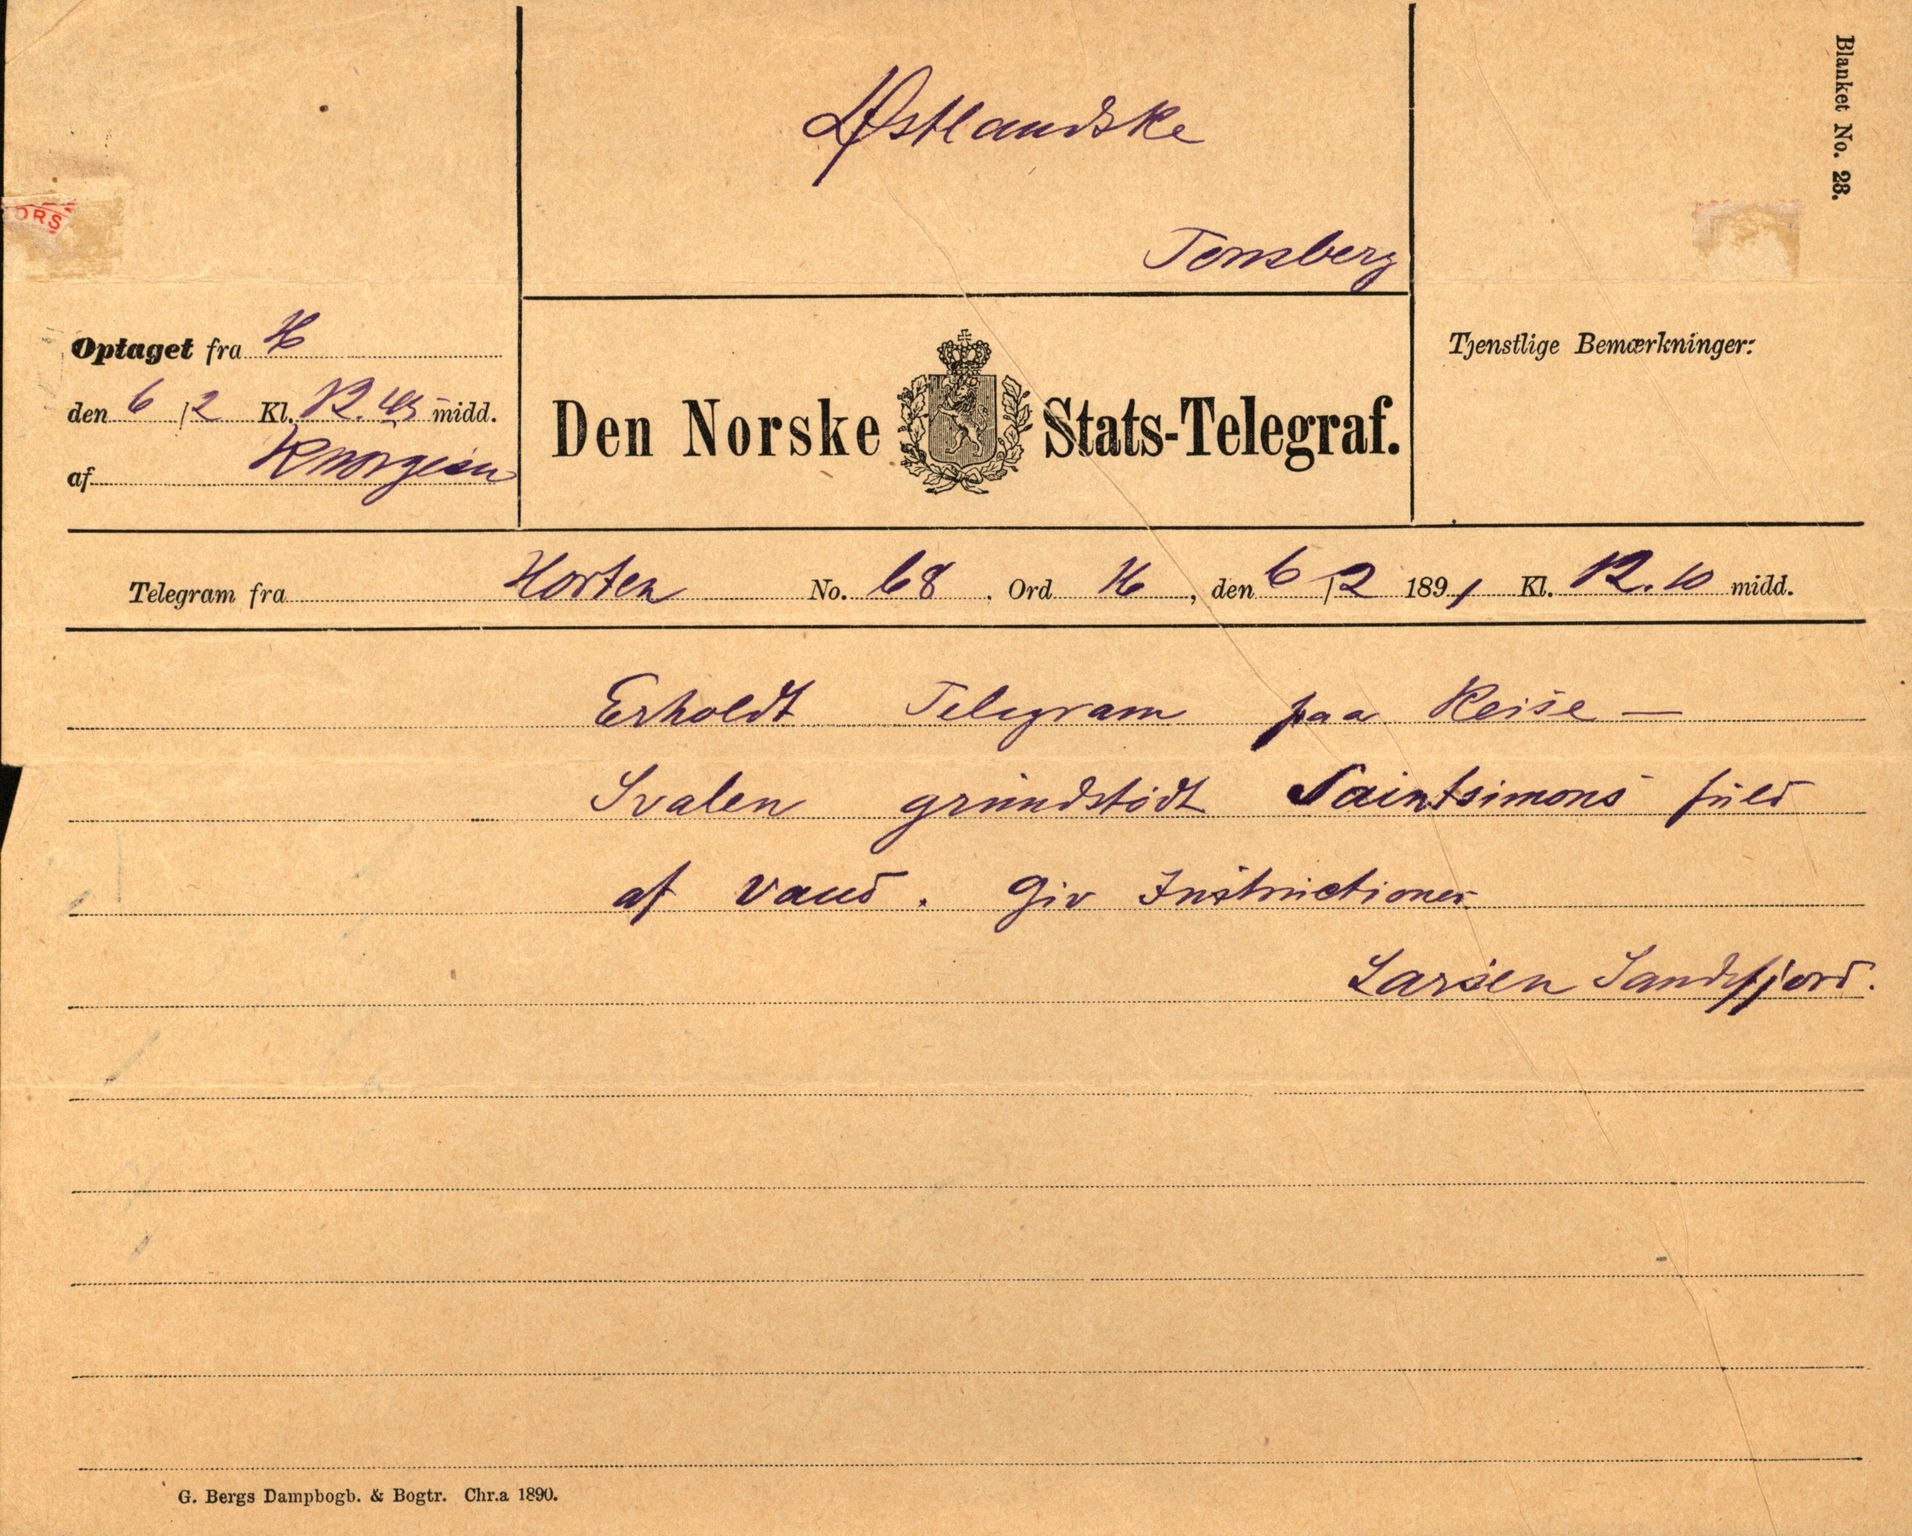 Blanket No. 28.
Østlandske
Tønsberg
ORS
Optaget fra H
den 6/2 Kl. 12.45 midd.
af
Den Norske Stats-Telegraf.
Tjenstlige Bemærkninger:
Telegram fra Horten No. 68. Ord 16, den 6/2 1891 Kl. 12.10 midd.
Erholdt Telegram paa Reise —
Svalen grundstødt Saintsimons fuld
af Vand. Giv Instructioner
Larsen Sandefjord.
G. Bergs Dampbogb. & Bogtr. Chr.a 1890.